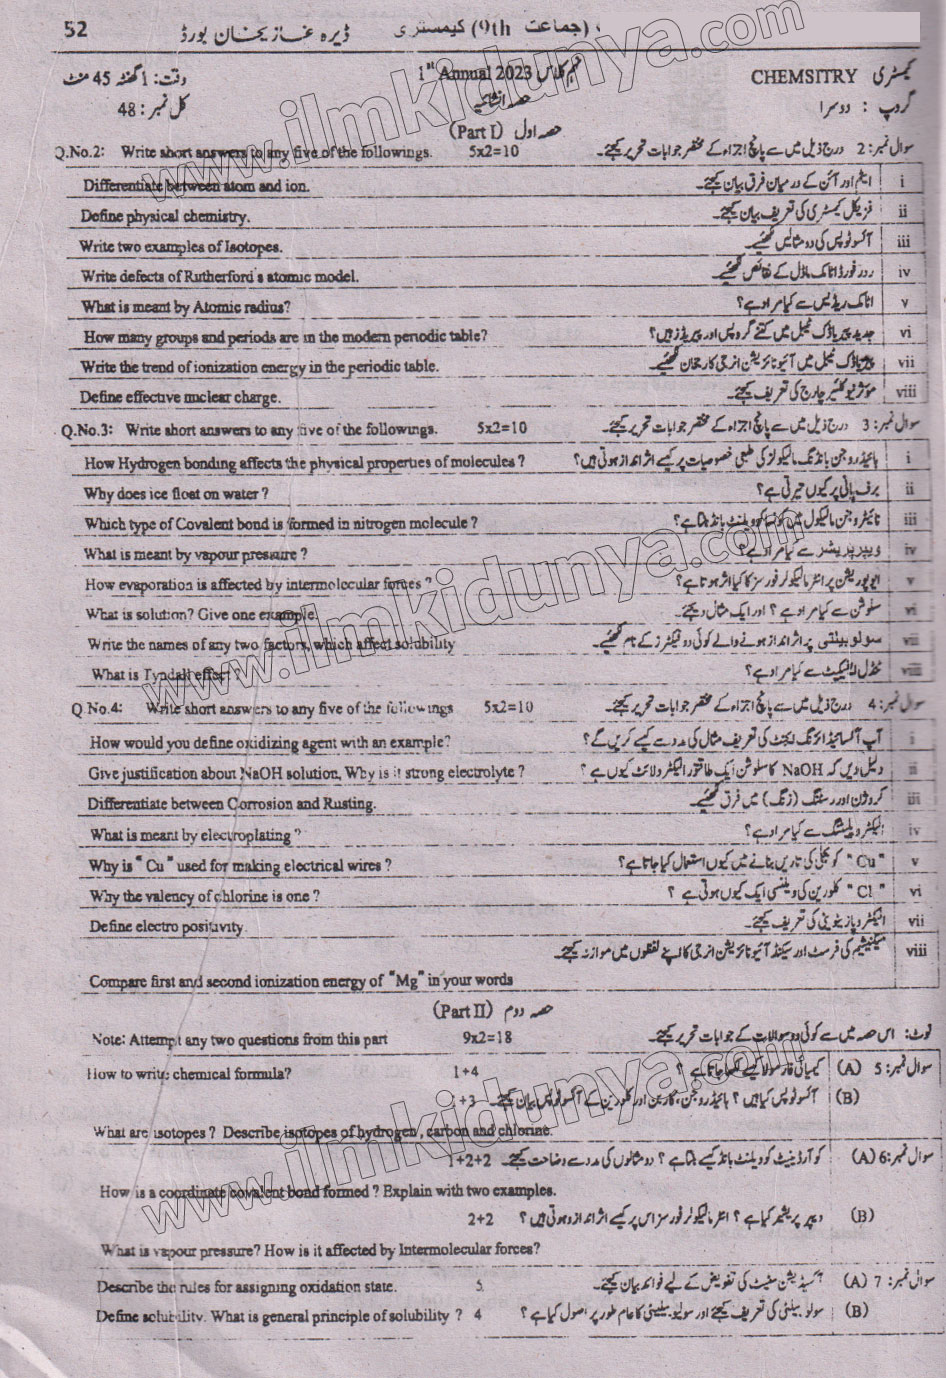 52 ڈیرہ غازیخان بورڈ (جماعت 9th) کیمسٹری
وقت: 1 گھنٹہ 45 منٹ 1st Annual 2023 نہم کلاس CHEMSITRY کیمسٹری
کل نمبر: 48 حصہ انشائیہ گروپ : دوسرا
(Part I) حصہ اول
Q.No.2: Write short answers to any five of the followings. 5x2=10 سوال نمبر: 2 درج ذیل میں سے پانچ اجزاء کے مختصر جوابات تحریر کیجئے۔
Differentiate between atom and ion. ایٹم اور آئن کے درمیان فرق بیان کیجئے۔ i
Define physical chemistry. فزیکل کیمسٹری کی تعریف بیان کیجئے۔ ii
Write two examples of Isotopes. آئسوٹوپس کی دو مثالیں لکھئیے۔ iii
Write defects of Rutherford's atomic model. ردرفورڈ اٹامک ماڈل کے نقائص لکھئیے۔ iv
What is meant by Atomic radius? اٹامک ریڈیس سے کیا مراد ہے؟ v
How many groups and periods are in the modern periodic table? جدید پیریاڈک ٹیبل میں کتنے گروپس اور پیریڈز ہیں؟ vi
Write the trend of ionization energy in the periodic table. پیریاڈک ٹیبل میں آئیونائزیشن انرجی کا رجحان لکھئیے۔ vii
Define effective nuclear charge. موثر نیوکلیئر چارج کی تعریف کیجئے۔ viii
Q.No.3: Write short answers to any five of the followings. 5x2=10 سوال نمبر: 3 درج ذیل میں سے پانچ اجزاء کے مختصر جوابات تحریر کیجئے۔
How Hydrogen bonding affects the physical properties of molecules ? ہائیڈروجن بانڈنگ مالیکولز کی طبعی خصوصیات پر کیسے اثر انداز ہوتی ہیں؟ i
Why does ice float on water ? برف پانی پر کیوں تیرتی ہے؟ ii
Which type of Covalent bond is formed in nitrogen molecule ? نائیٹروجن مالیکیول میں کونسا کوویلنٹ بانڈ بنتا ہے؟ iii
What is meant by vapour pressure ? ویپر پریشر سے کیا مراد ہے؟ iv
How evaporation is affected by intermolecular forces ? ایوپوریشن پر انٹر مالیکیولر فورسز کا کیا اثر ہوتا ہے؟ v
What is solution? Give one example. سلوشن سے کیا مراد ہے ؟ اور ایک مثال دیجئے۔ vi
Write the names of any two factors, which affect solubility سولوبیلٹی پر اثر انداز ہونے والے کوئی دو فیکٹرز کے نام لکھئیے۔ vii
What is Tyndall effect ? ٹنڈل ایفیکٹ سے کیا مراد ہے؟ viii
Q No.4: Write short answers to any five of the followings 5x2=10 سوال نمبر: 4 درج ذیل میں سے پانچ اجزاء کے مختصر جوابات تحریر کیجئے۔
How would you define oxidizing agent with an example? آپ آکسائیڈائزنگ ایجنٹ کی تعریف مثال کی مدد سے کیسے کریں گے؟ i
Give justification about NaOH solution, Why is it strong electrolyte ? دلیل دیں کہ NaOH کا سلوشن ایک طاقتور الیکٹرولائٹ کیوں ہے ؟ ii
Differentiate between Corrosion and Rusting. کروژن اور رسٹنگ (زنگ) میں فرق لکھئیے۔ iii
What is meant by electroplating ? الیکٹروپلیٹنگ سے کیا مراد ہے؟ iv
Why is "Cu" used for making electrical wires ? "Cu" کو بجلی کی تاریں بنانے میں کیوں استعمال کیا جاتا ہے؟ v
Why the valency of chlorine is one ? "Cl" کلورین کی ویلنسی ایک کیوں ہوتی ہے ؟ vi
Define electro positivity. الیکٹروپازیٹویٹی کی تعریف کیجئے۔ vii
میگنیشیم کی فرسٹ اور سیکنڈ آئیونائزیشن انرجی کا اپنے لفظوں میں موازنہ کیجئے۔ viii
Compare first and second ionization energy of "Mg" in your words
(Part II) حصہ دوم
Note: Attempt any two questions from this part 9x2=18 نوٹ: اس حصہ میں سے کوئی دو سوالات کے جوابات تحریر کیجئے۔
How to write chemical formula? 1+4 سوال نمبر: 5 (A) کیمیائی فارمولا کیسے لکھا جاتا ہے ؟
1+3 (B) آئسوٹوپس کیا ہیں ؟ ہائیڈروجن، کاربن اور کلورین کے آئسوٹوپس بیان کیجئے۔
What are isotopes ? Describe isotopes of hydrogen, carbon and chlorine.
1+2+2 سوال نمبر: 6 (A) کوآرڈینیٹ کوویلنٹ بانڈ کیسے بنتا ہے ؟ دو مثالوں کی مدد سے وضاحت کیجئے۔
How is a coordinate covalent bond formed ? Explain with two examples.
2+2 (B) ویپر پریشر کیا ہے ؟ انٹر مالیکیولر فورسز اس پر کیسے اثر انداز ہوتی ہیں ؟
What is vapour pressure? How is it affected by Intermolecular forces?
Describe the rules for assigning oxidation state. 5 سوال نمبر: 7 (A) آکسیڈیشن سٹیٹ کی تفویض کے لیے قوائد بیان کیجئے۔
Define solubility. What is general principle of solubility ? 4 (B) سولوبیلٹی کی تعریف کیجئے اور سولیوبیلیٹی کا عام طور پر اصول کیا ہے ؟
www.ilmkidunya.com
www.ilmkidunya.com
www.ilmkidunya.com